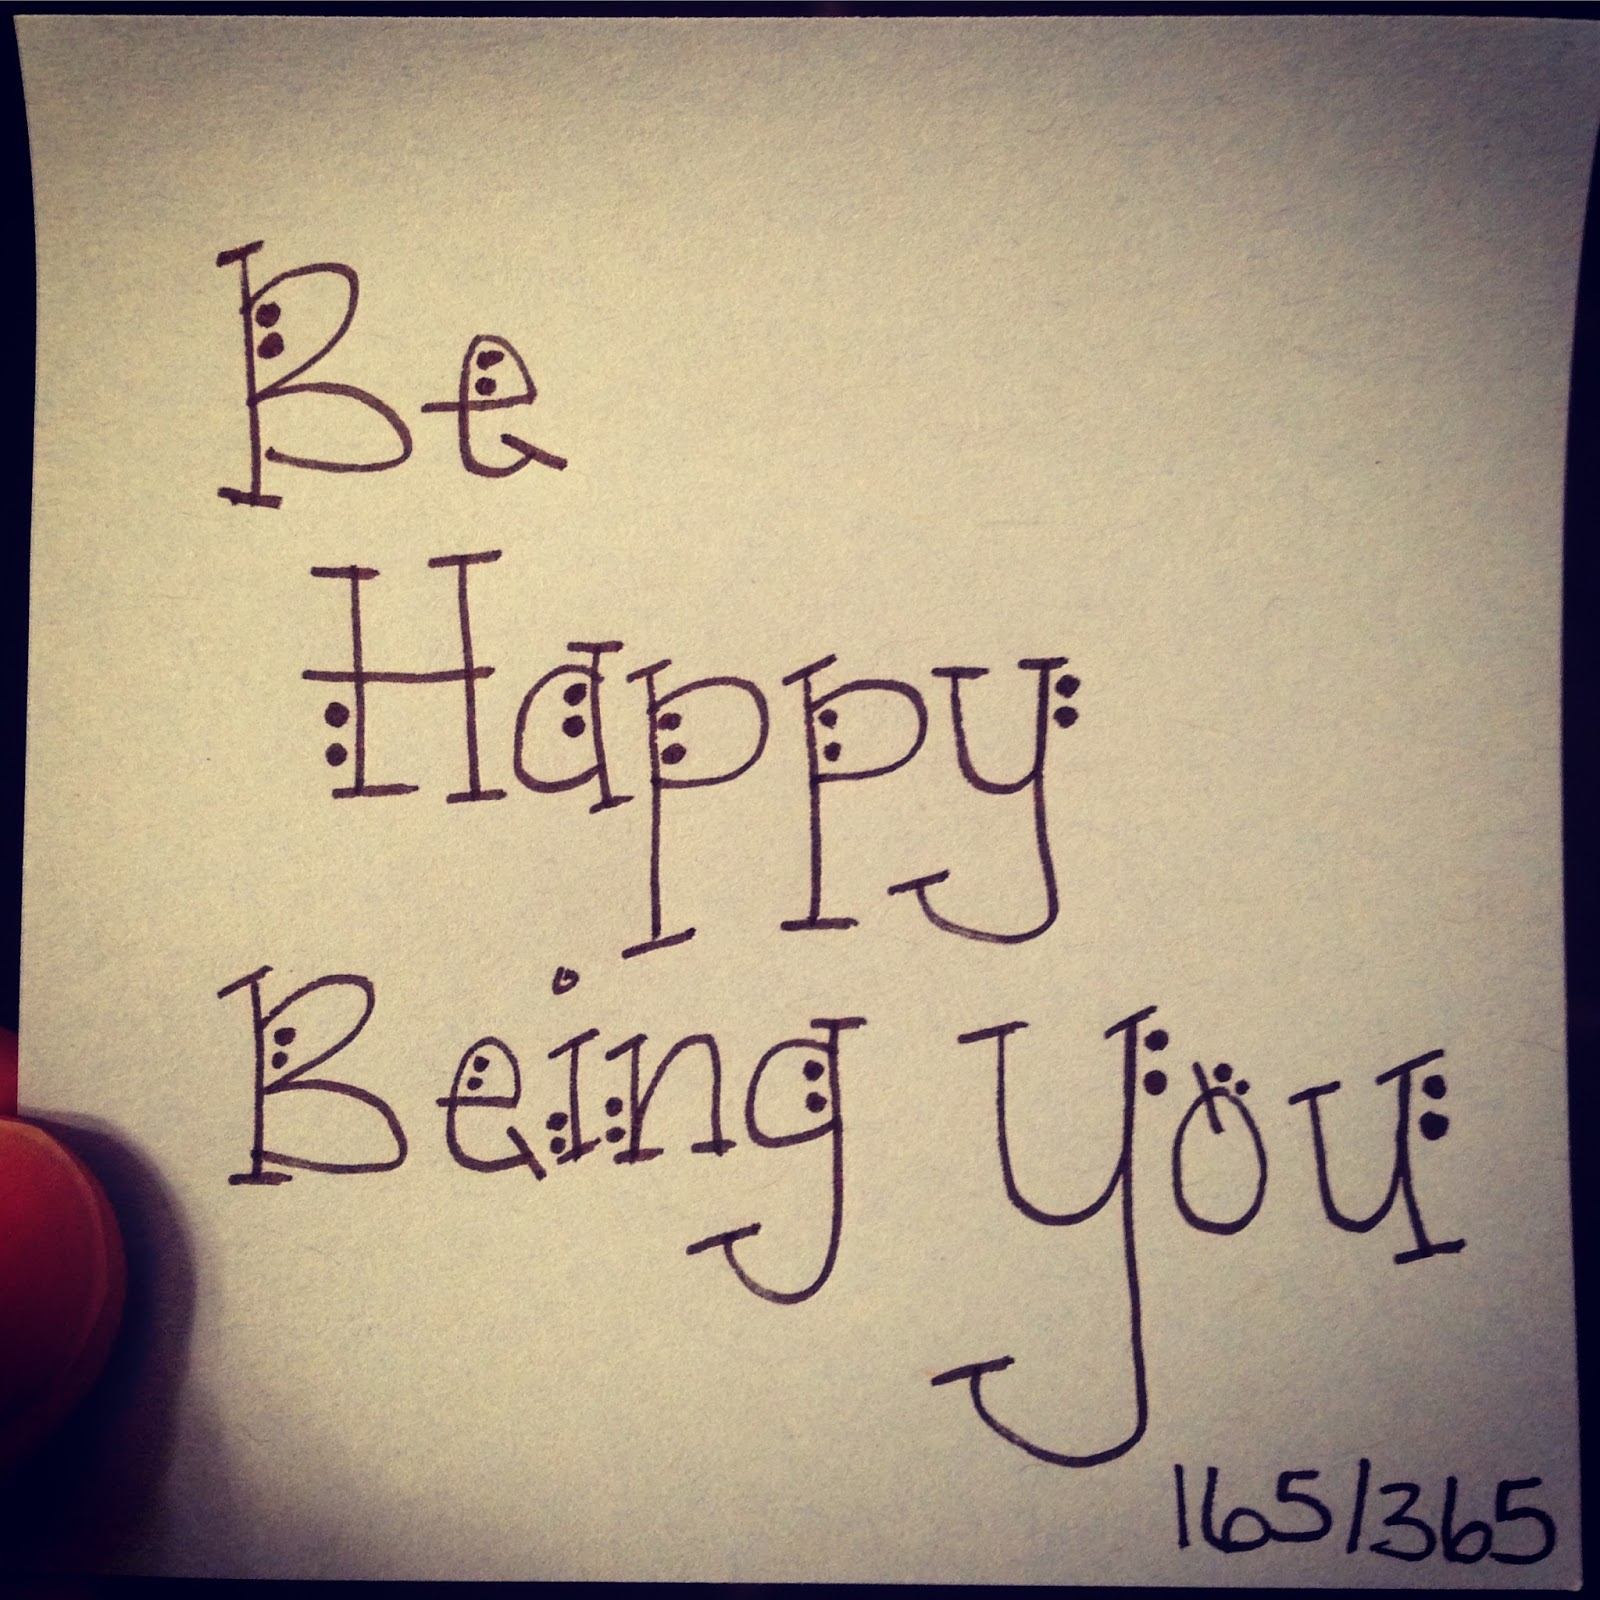 Be
Happy
Being You
165/365